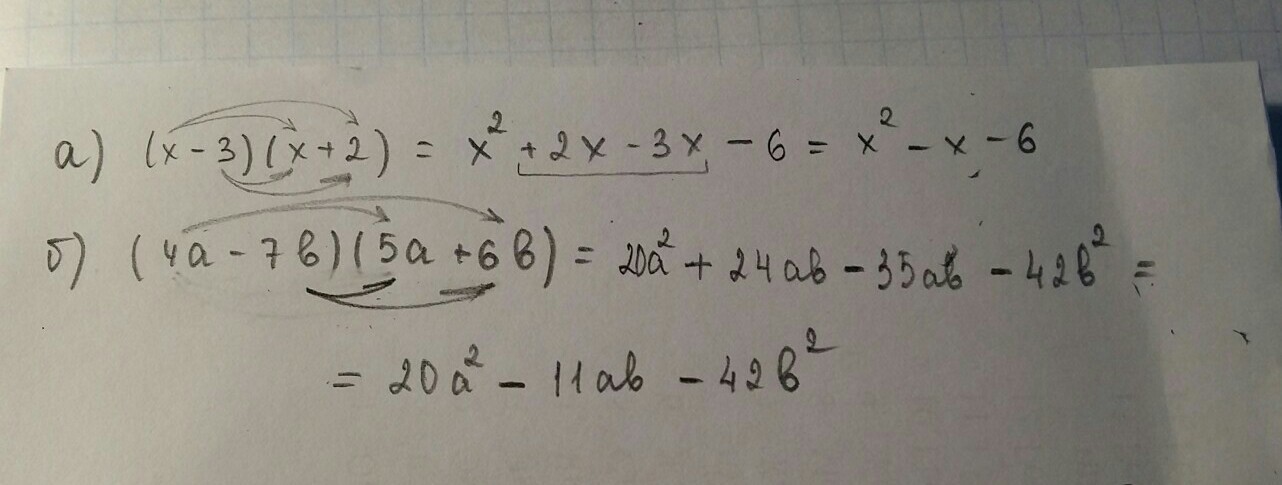 а) (x - 3)(x + 2) = x² + 2x - 3x - 6 = x² - x - 6
б) (4a - 7b)(5a + 6b) = 20a² + 24ab - 35ab - 42b² =
= 20a² - 11ab - 42b²